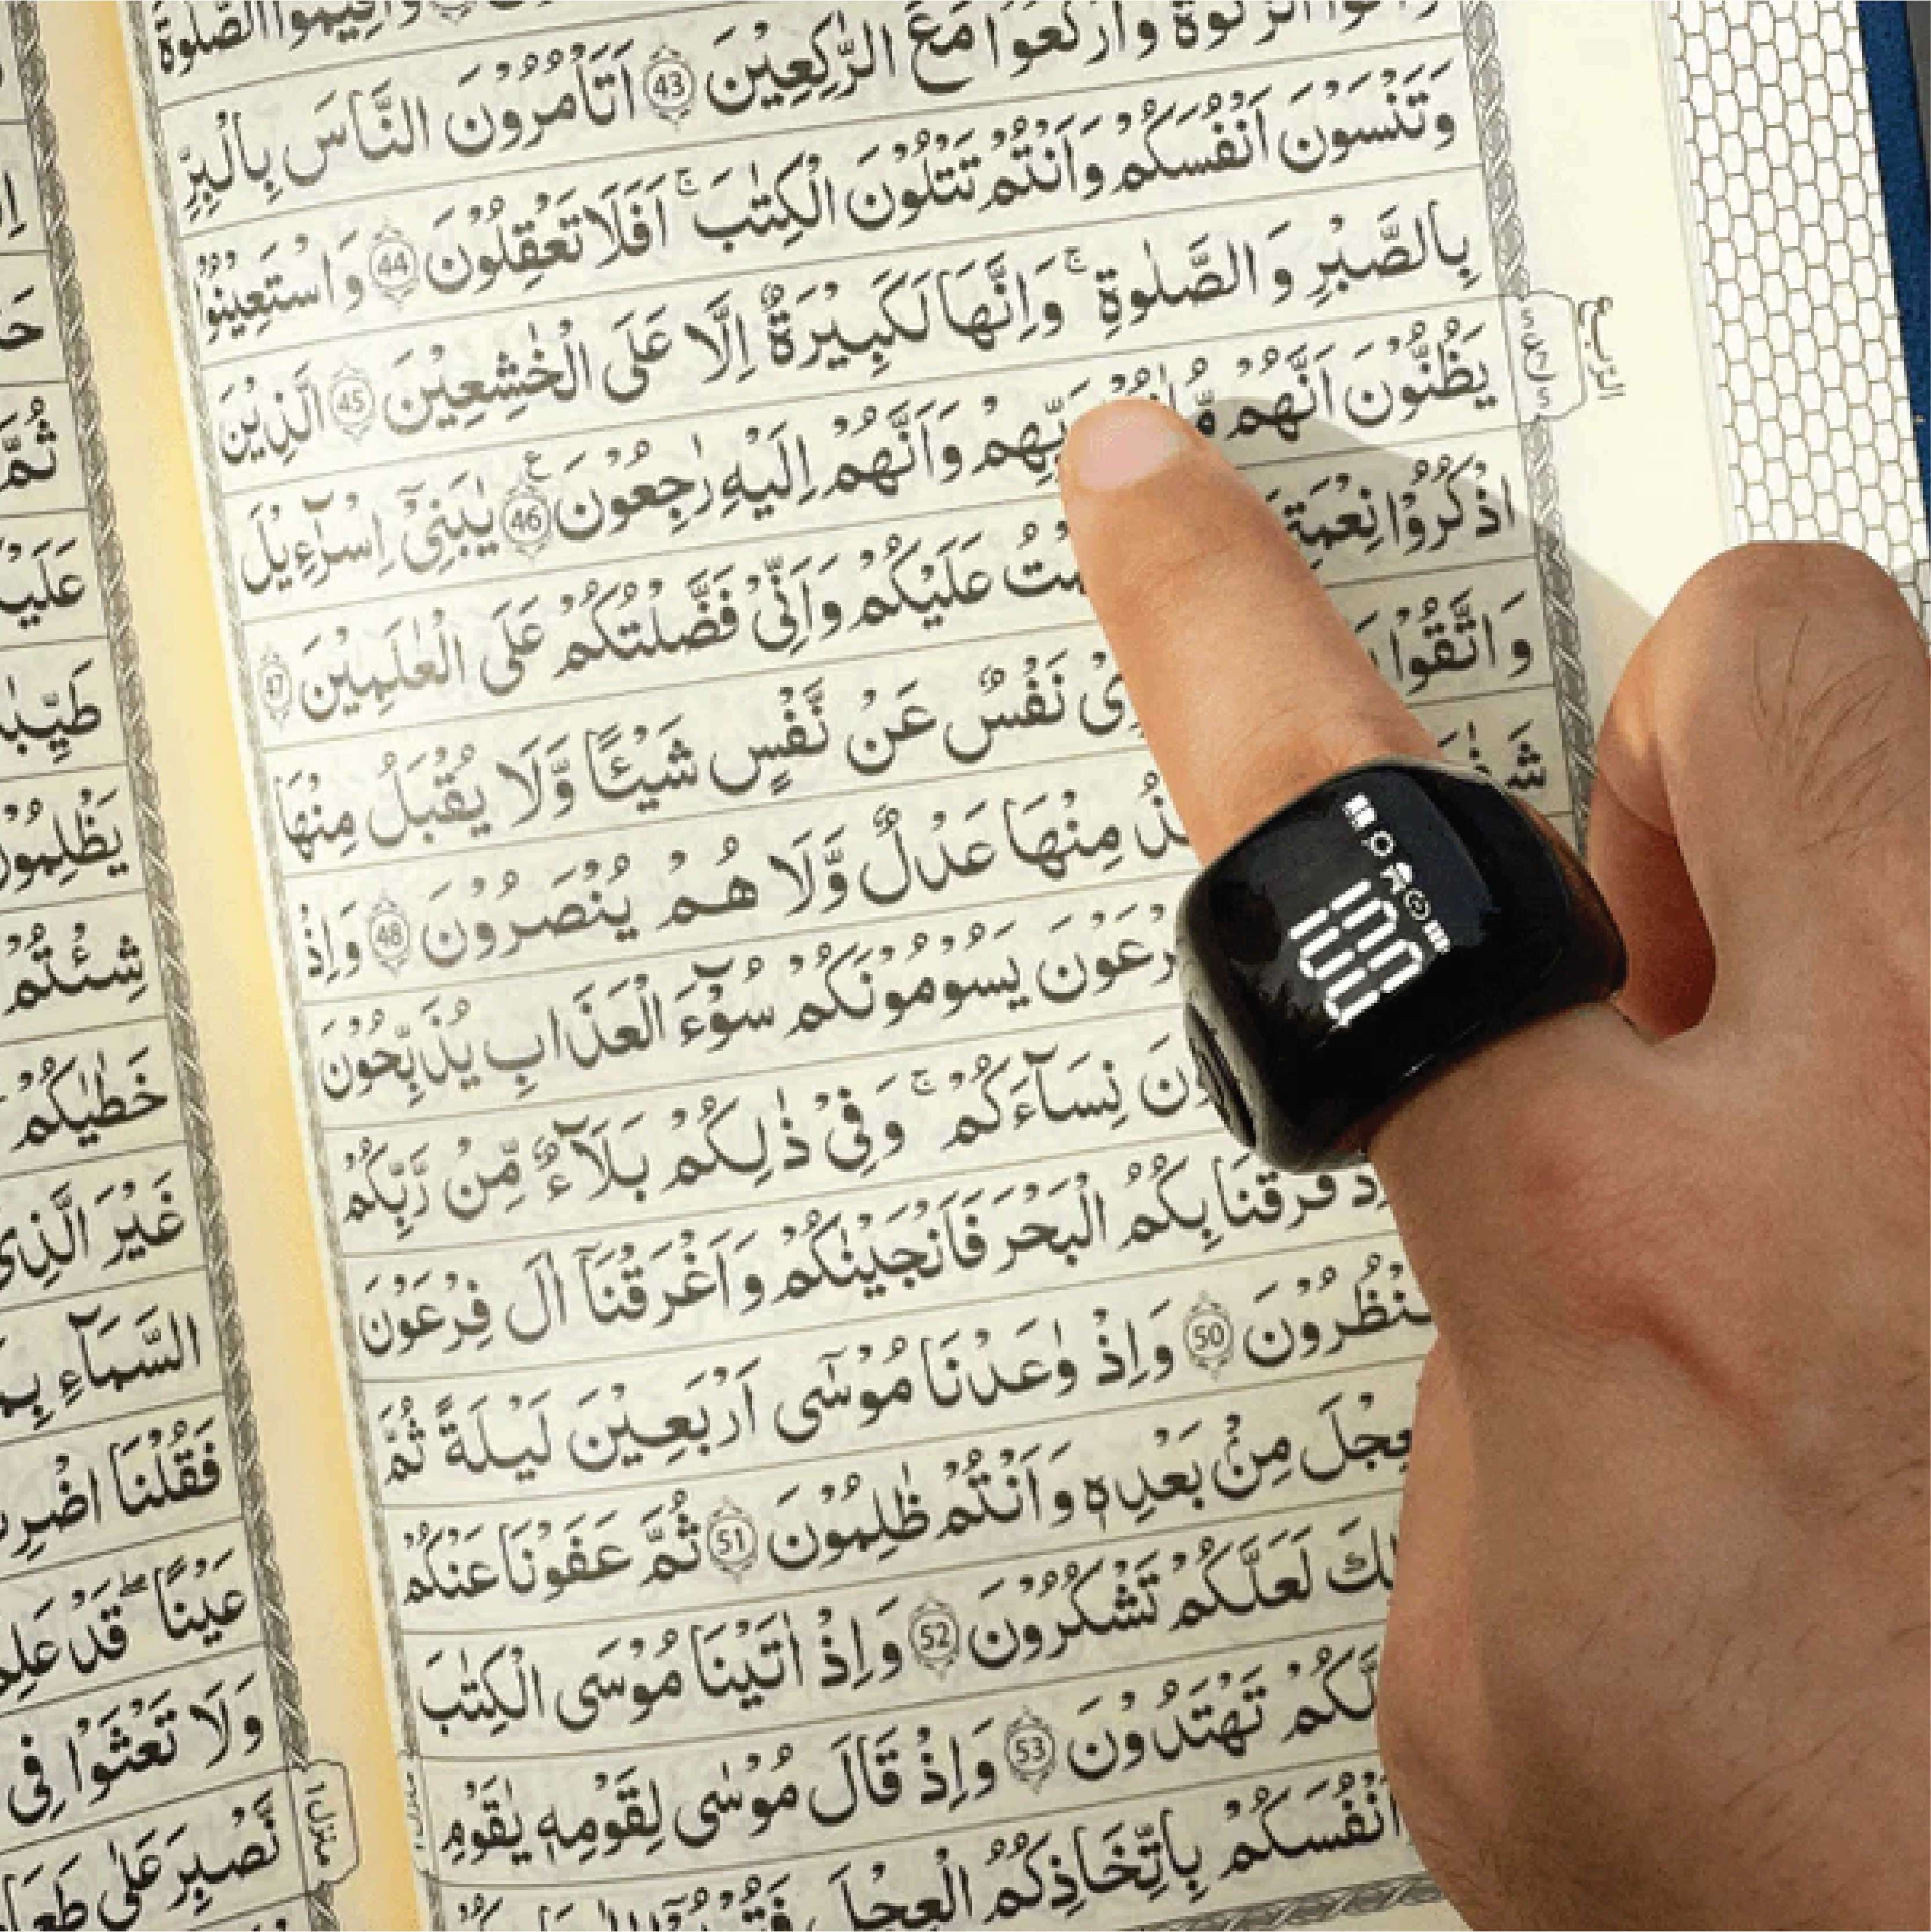 الزَّكٰوةَ وَارْكَعُوْا مَعَ الرّٰكِعِيْنَ 43 اَتَاْمُرُوْنَ النَّاسَ بِالْبِرِّ
وَتَنْسَوْنَ اَنْفُسَكُمْ وَاَنْتُمْ تَتْلُوْنَ الْكِتٰبَ ۚ اَفَلَا تَعْقِلُوْنَ 44 وَاسْتَعِيْنُوْا
بِالصَّبْرِ وَالصَّلٰوةِ ۚ وَاِنَّهَا لَكَبِيْرَةٌ اِلَّا عَلَى الْخٰشِعِيْنَ 45 الَّذِيْنَ
الربع
يَظُنُّوْنَ اَنَّهُمْ رَبِّهِمْ وَاَنَّهُمْ اِلَيْهِ رٰجِعُوْنَ 46 يٰبَنِىْٓ اِسْرَآءِيْلَ
اذْكُرُوْا نِعْمَتِيَ عَلَيْكُمْ وَاَنِّىْ فَضَّلْتُكُمْ عَلَى الْعٰلَمِيْنَ 47
وَاتَّقُوْا نَفْسٌ عَنْ نَّفْسٍ شَيْئًا وَّلَا يُقْبَلُ مِنْهَا
مِنْهَا عَدْلٌ وَّلَا هُمْ يُنْصَرُوْنَ 48 وَاِذْ
يَسُوْمُوْنَكُمْ سُوْٓءَ الْعَذَابِ يُذَبِّحُوْنَ
نِسَآءَكُمْ ۚ وَفِىْ ذٰلِكُمْ بَلَآءٌ مِّنْ رَّبِّكُمْ
فَرَقْنَا بِكُمُ الْبَحْرَ فَاَنْجَيْنٰكُمْ وَاَغْرَقْنَآ اٰلَ فِرْعَوْنَ
50 وَاِذْ وٰعَدْنَا مُوْسٰٓى اَرْبَعِيْنَ لَيْلَةً ثُمَّ
مِنْۢ بَعْدِهٖ وَاَنْتُمْ ظٰلِمُوْنَ 51 ثُمَّ عَفَوْنَا عَنْكُمْ
لَعَلَّكُمْ تَشْكُرُوْنَ 52 وَاِذْ اٰتَيْنَا مُوْسَى الْكِتٰبَ
تَهْتَدُوْنَ 53 وَاِذْ قَالَ مُوْسٰى لِقَوْمِهٖ يٰقَوْمِ
اَنْفُسَكُمْ بِاتِّخَاذِكُمُ الْعِجْلَ
ثُمَّ
شِئْتُمْ
خَطٰيٰكُمْ
غَيْرَ الَّذِىْ
السَّمَآءِ
فَقُلْنَا
عَيْنًا ؕ قَدْ
وَلَا تَعْثَوْا فِى
نَّصْبِرَ عَلٰى
منزل ١